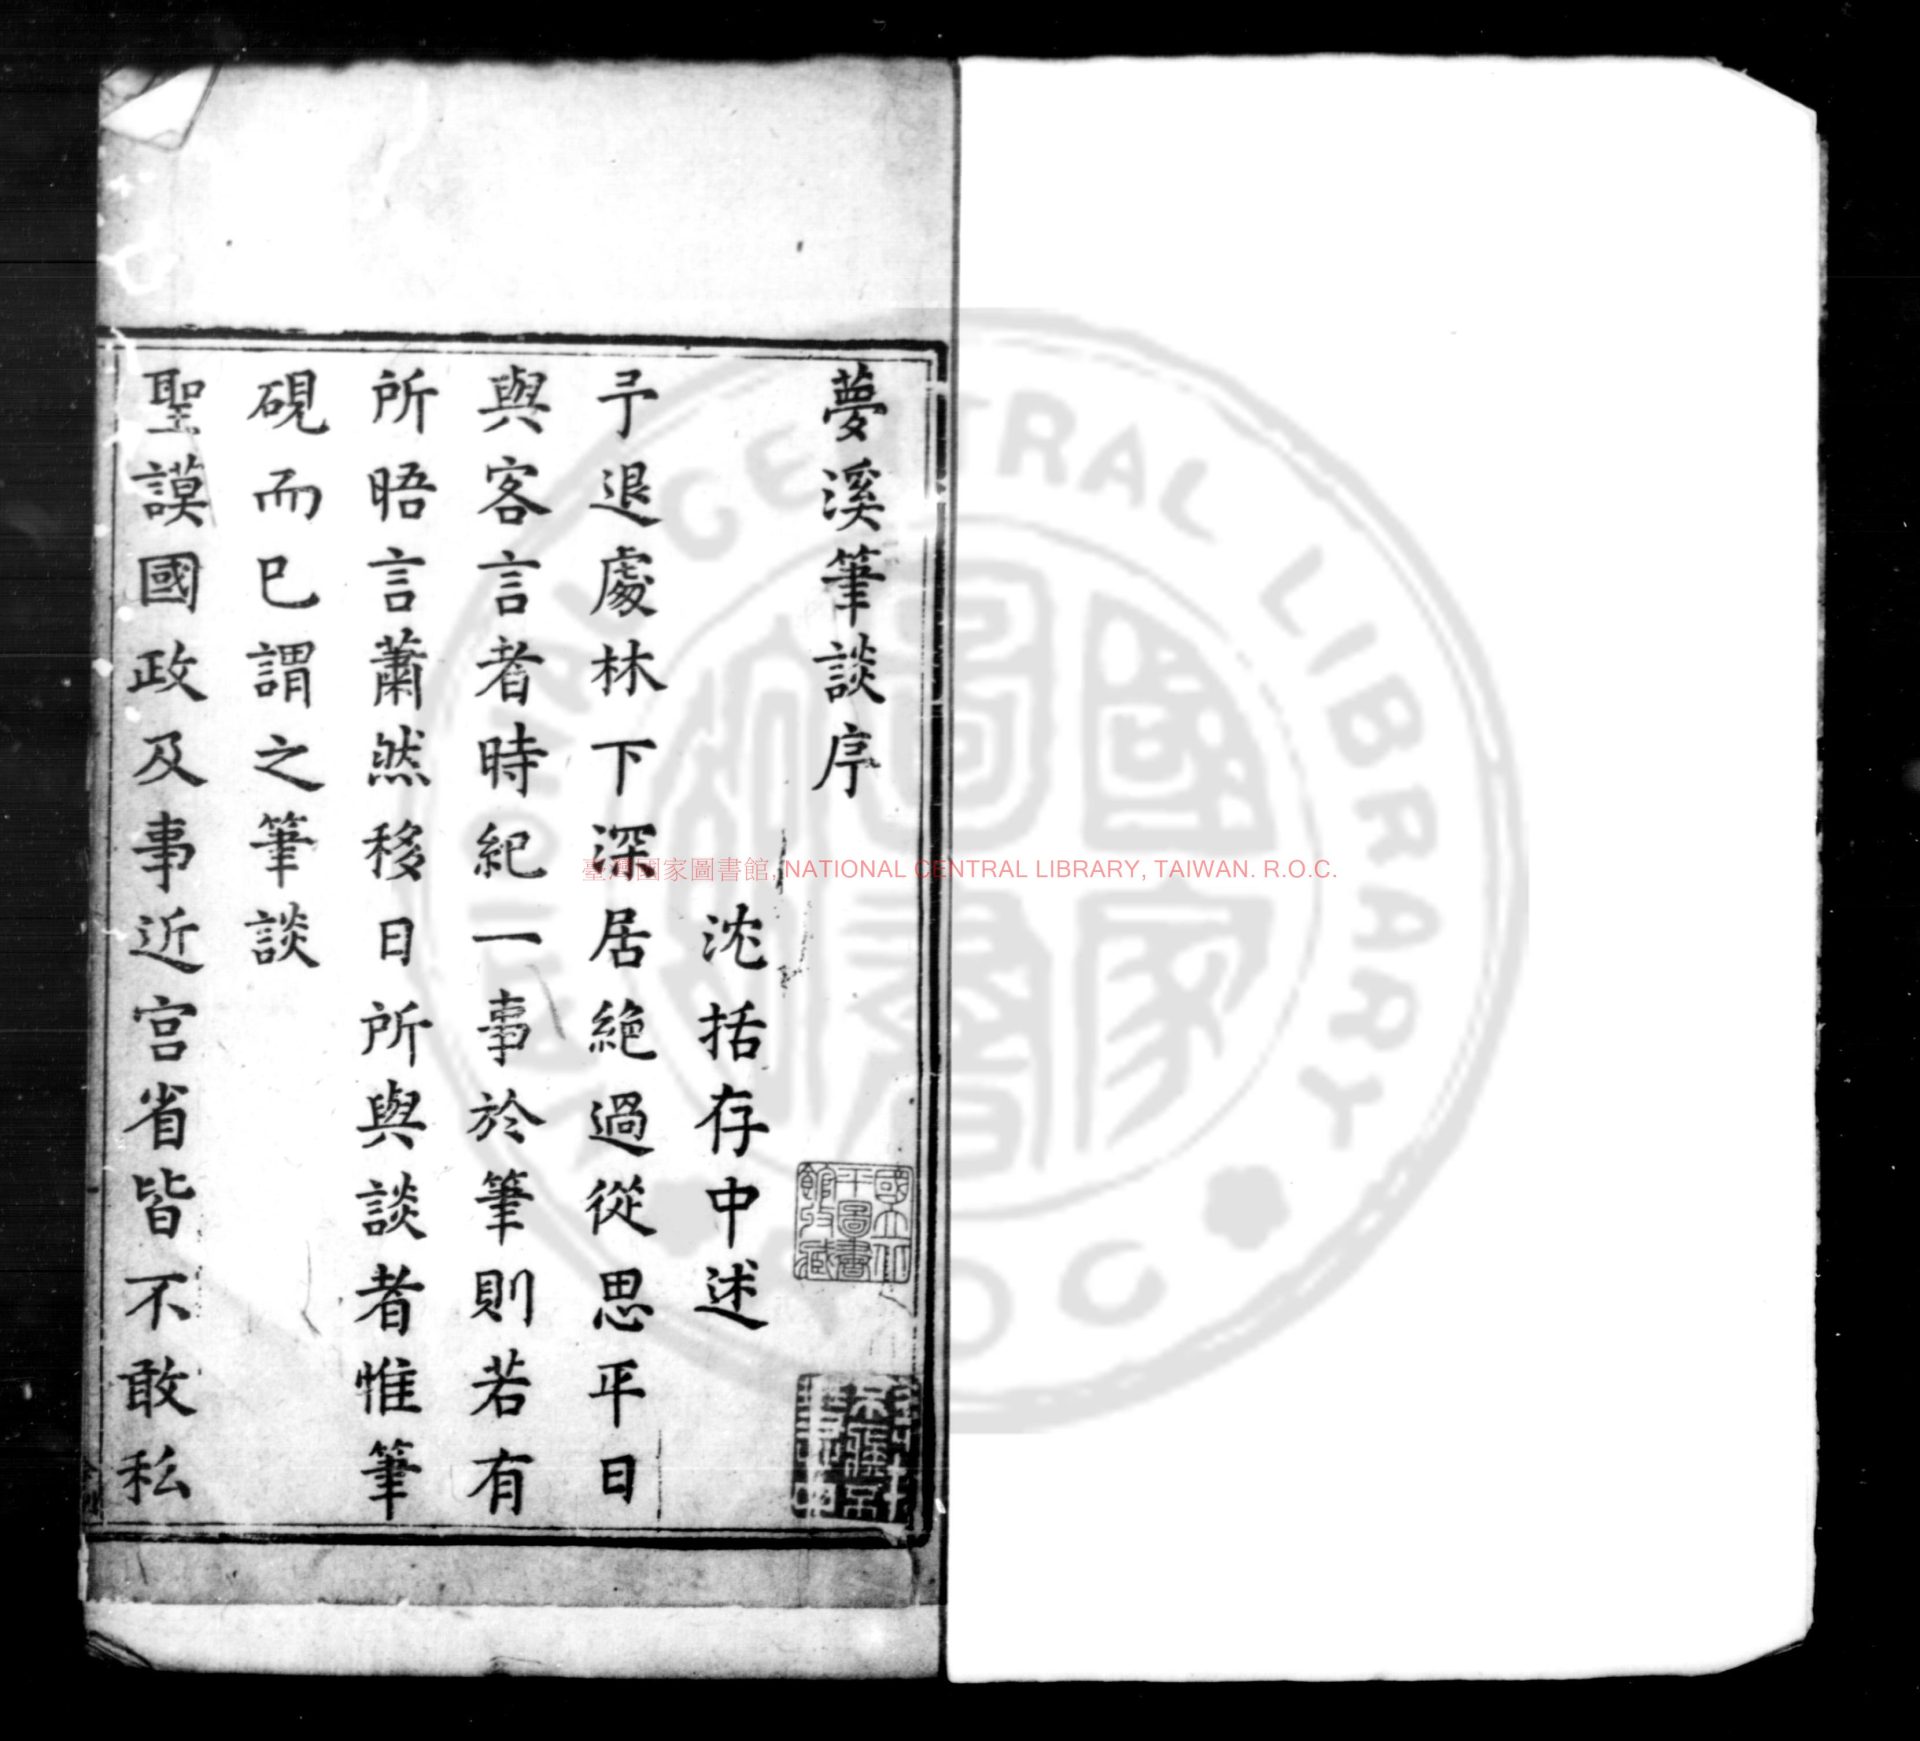 夢溪筆談序
沈括存中述
予退處林下深居絶過從思平日
與客言者時紀一事於筆則若有
所晤言蕭然移日所與談者惟筆
硯而已謂之筆談
聖謨國政及事近宫省皆不敢私
國立北
平圖書
館收藏
臺灣國家圖書館, NATIONAL CENTRAL LIBRARY, TAIWAN. R.O.C.
NATIONAL CENTRAL LIBRARY
國家圖書